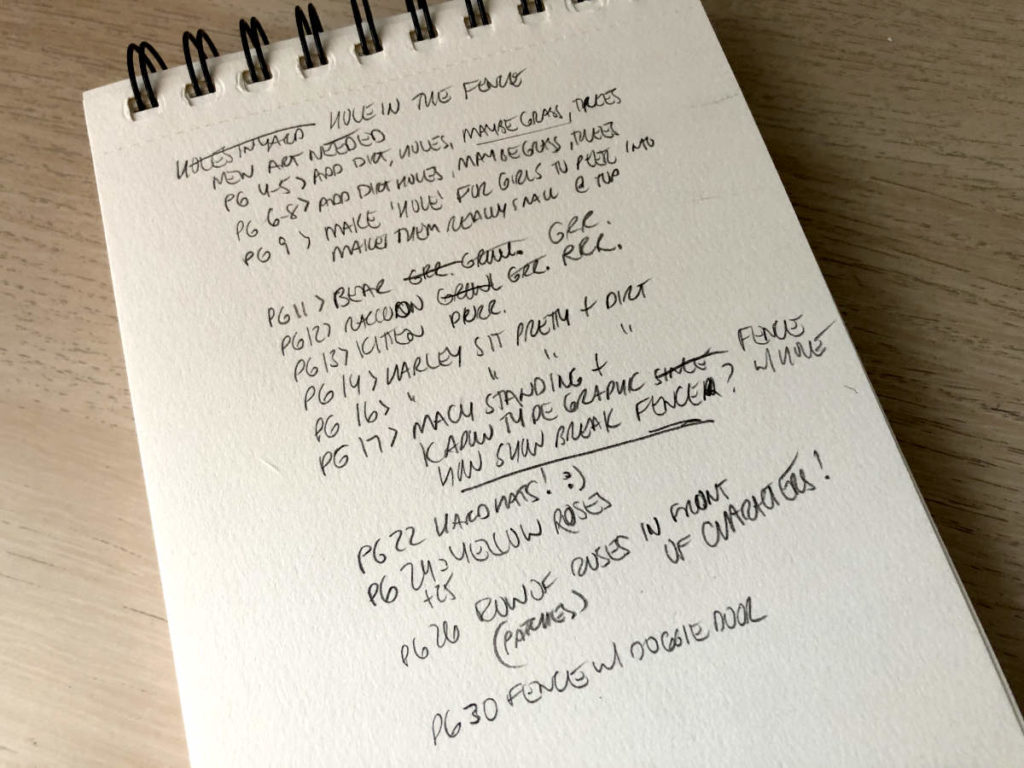 HOLES IN YARD HOLE IN THE FENCE
NEW ART NEEDED
PG 4-5 > ADD DIRT, HOLES, MAYBE GRASS, TREES
PG 6-8 > ADD DIRT HOLES, MAYBE GRASS, TREES
PG 9 > MAKE 'HOLE' FOR GIRLS TO PEEK INTO
MAKES THEM REALLY SMALL @ TOP
PG 11 > BEAR GRR. GROWL. GRR.
PG 12 > RACCOON GROWL GRR. RRR.
PG 13 > KITTEN PURR.
PG 14 > HARLEY SIT PRETTY + DIRT
PG 16 > " " "
PG 17 > MACY STANDING + FENCE
KAPOW TYPE GRAPHIC SINCE W/ HOLE
HOW SHOW BREAK FENCE?
PG 22 HARD HATS! :)
PG 24 > YELLOW ROSES
+25
PG 26 ROW OF ROSES IN FRONT
(PATCHES) OF CHARACTERS!
PG 30 FENCE W/ DOGGIE DOOR